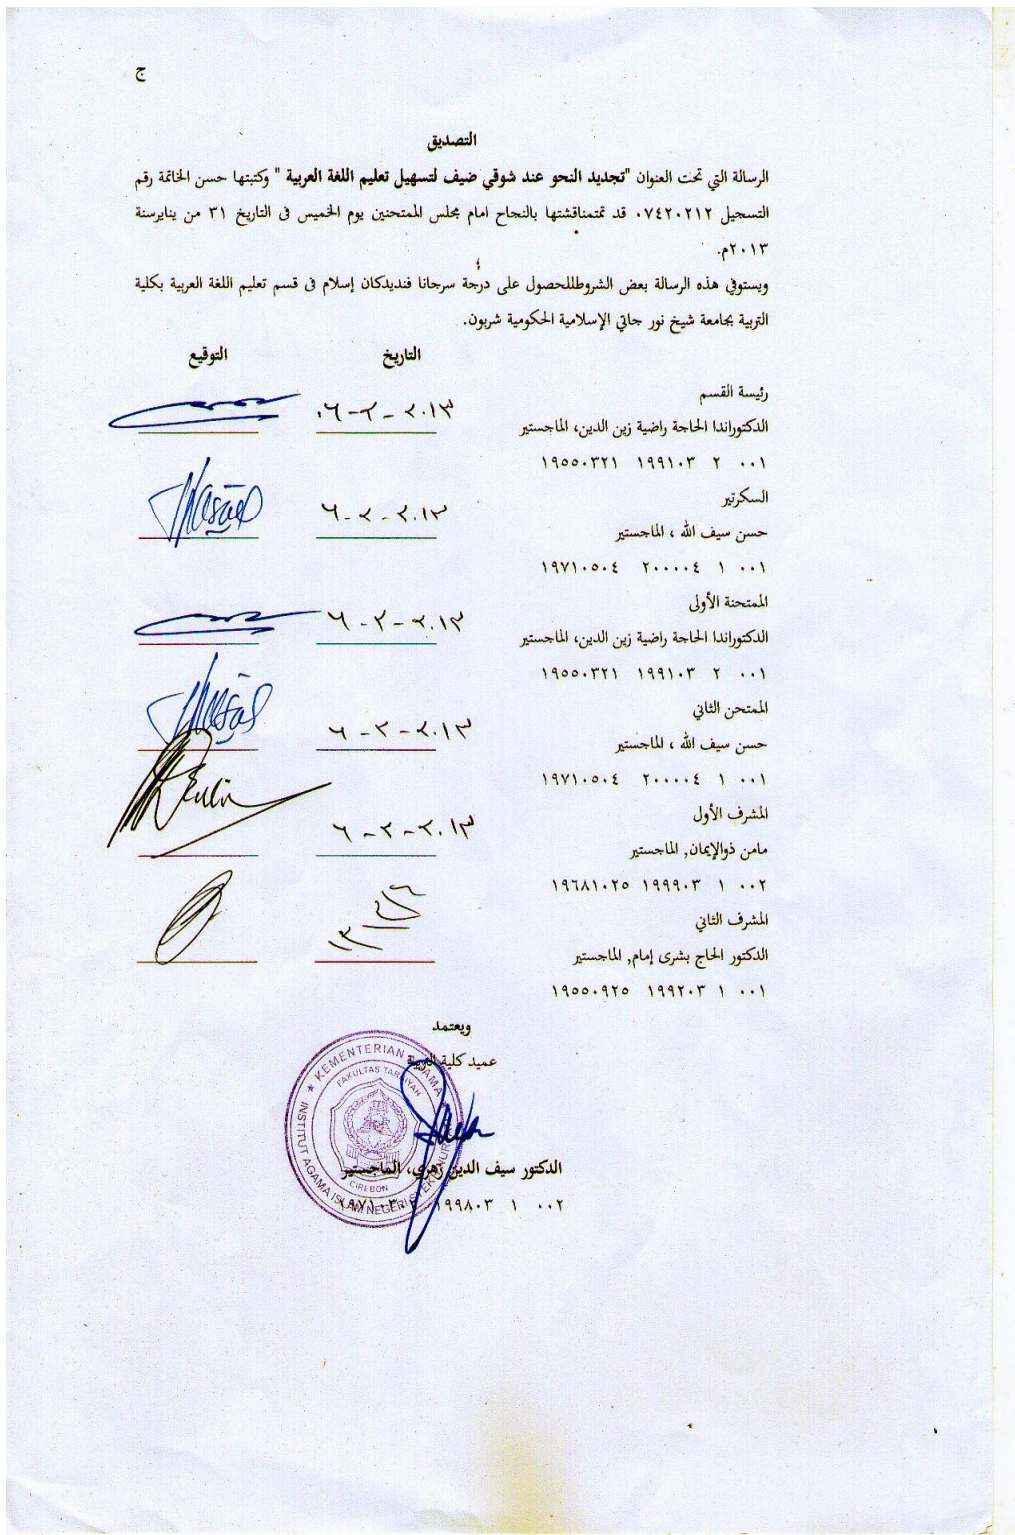 ج
التصديق
الرسالة التي تحت العنوان "تجديد النحو عند شوقي ضيف لتسهيل تعليم اللغة العربية " وكتبتها حسن الخاتمة رقم
التسجيل ٠٧٤٢٠٢١٢ قد تمتمناقشتها بالنجاح امام مجلس الممتحنين يوم الخميس فى التاريخ ٣١ من ينايرسنة
٢٠١٣م.
ويستوفي هذه الرسالة بعض الشروطللحصول على درجة سرجانا فنديدكان إسلام فى قسم تعليم اللغة العربية بكلية
التربية بجامعة شيخ نور جاتي الإسلامية الحكومية شربون.
التاريخ التوقيع
رئيسة القسم
الدكتوراندا الحاجة راضية زين الدين، الماجستير ٠٦-٢-٢٠١٣
١٩٥٥٠٣٢١ ١٩٩١٠٣ ٢ ٠٠١
السكرتير
حسن سيف الله ، الماجستير ٦-٢-٢٠١٣
١٩٧١٠٥٠٤ ٢٠٠٠٠٤ ١ ٠٠١
الممتحنة الأولى
الدكتوراندا الحاجة راضية زين الدين، الماجستير ٦-٢-٢٠١٣
١٩٥٥٠٣٢١ ١٩٩١٠٣ ٢ ٠٠١
الممتحن الثاني
حسن سيف الله ، الماجستير ٦-٢-٢٠١٣
١٩٧١٠٥٠٤ ٢٠٠٠٠٤ ١ ٠٠١
المشرف الأول
مامن ذوالإيمان, الماجستير ٦-٢-٢٠١٣
١٩٦٨١٠٢٥ ١٩٩٩٠٣ ١ ٠٠٢
المشرف الثاني
الدكتور الحاج بشرى إمام, الماجستير
١٩٥٥٠٩٢٥ ١٩٩٢٠٣ ١ ٠٠١
ويعتمد
عميد كلية التربية
KEMENTERIAN AGAMA
FAKULTAS TARBIYAH
INSTITUT AGAMA ISLAM NEGERI SYEKH NUR
CIREBON
الدكتور سيف الدين زهري، الماجستير
١٩٩٨٠٣ ١ ٠٠٢